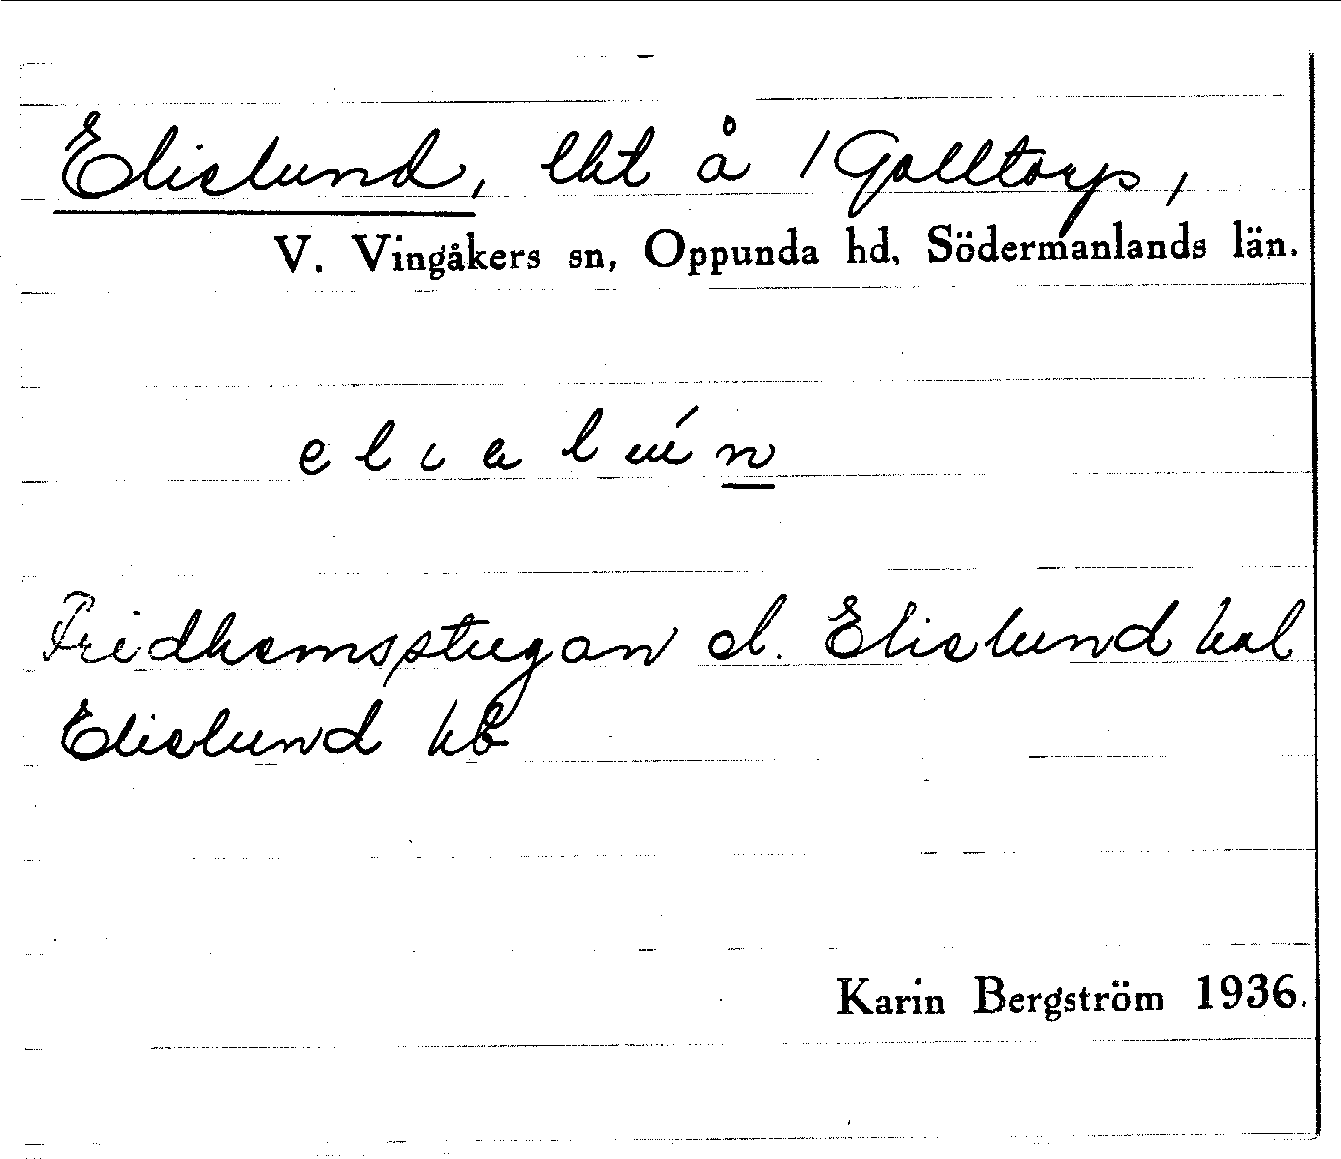 Elislund, lht å 1 Galltorp,
V. Vingåkers sn, Oppunda hd, Södermanlands län.
Fridhemsstugan el. Elislund hal
Elislund kb
Karin Bergström 1936.